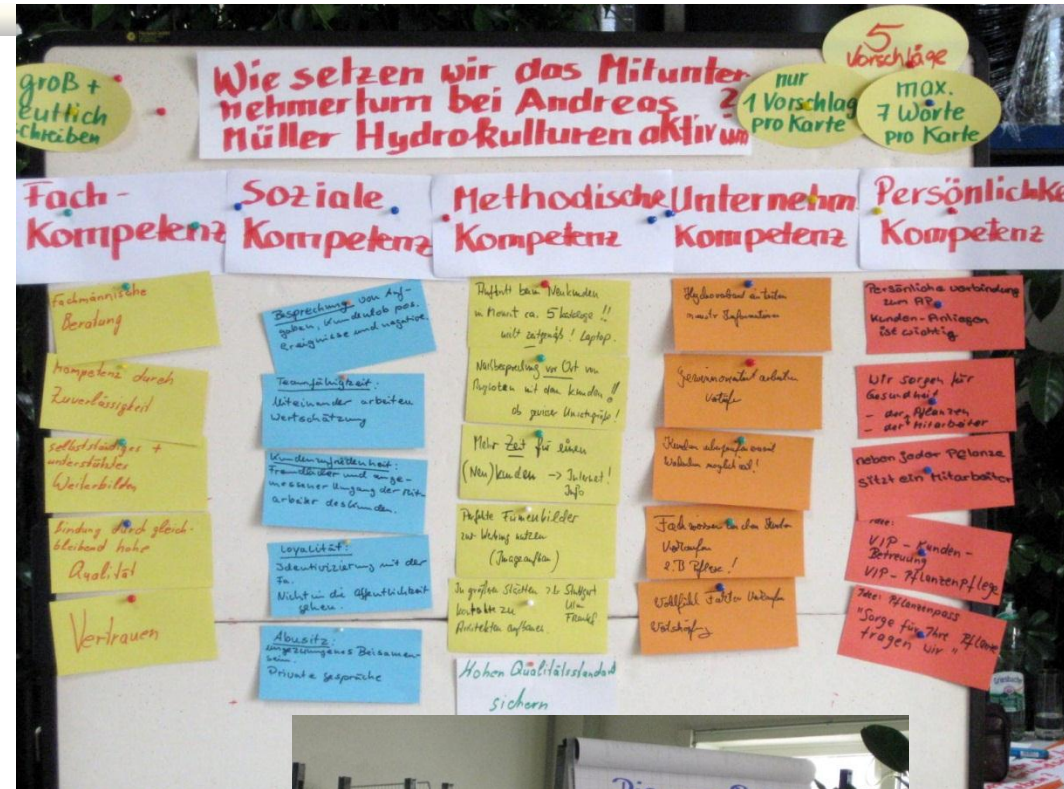 groß +
eutlich
chreiben
Wie setzen wir das Mitunter
nehmertum bei Andreas ?
Müller Hydrokulturen aktiv um
5
Vorschläge
nur
1 Vorschlag
pro Karte
max.
7 Worte
pro Karte
Fach-
Kompetenz
Soziale
Kompetenz
Methodische
Kompetenz
Unternehm
Kompetenz
Persönlichke
Kompetenz
Fachmännische
Beratung
Kompetenz durch
Zuverlässigkeit
selbstständiges +
unterstütztes
Weiterbilden
Bindung durch gleich-
bleibend hohe
Qualität
Vertrauen
Besprechung von Auf-
gaben, Kundenlob pos.
Ereignisse und negative.
Teamfähigkeit:
Miteinander arbeiten
Wertschätzung
Kundenzufriedenheit:
Freundlicher und ange-
messener Umgang der Mit-
arbeiter des Kunden.
Loyalität:
Identivizierung mit der
Fa.
Nicht in die öffentlichkeit
gehen.
Abusitz:
ungezwungenes Beisamen-
sein.
Private Gespräche
Auftritt beim Neukunden
ca. 5 Kataloge !!
zeitgemäß! Laptop.
vor Ort von
mit den Kunden !!
ob gewisser
Mehr Zeit für einen
(Neu)kunden -> Internet!
Info
Perfekte Firmenbilder
zur Werbung nutzen
(Imageaufbau)
In großen Städten z.b. Stuttgart
Kontakte zu Ulm
Architekten aufbauen
Hohen Qualitätsstandard
sichern
Gewinnorientiert arbeiten
Fachwissen an den Kunden
Verkaufen
z.B Pflege!
Wohlfühl Faktor Verkaufen
Persönliche Verbindung
zum AP
Kunden-Anliegen
ist wichtig
Wir sorgen für
Gesundheit
- der Pflanzen
- der Mitarbeiter
neben jeder Pflanze
sitzt ein Mitarbeiter
Idee:
VIP-Kunden-
Betreuung
VIP-Pflanzenpflege
Idee: Pflanzenpass
"Sorge für Ihre Pflanze
tragen wir"